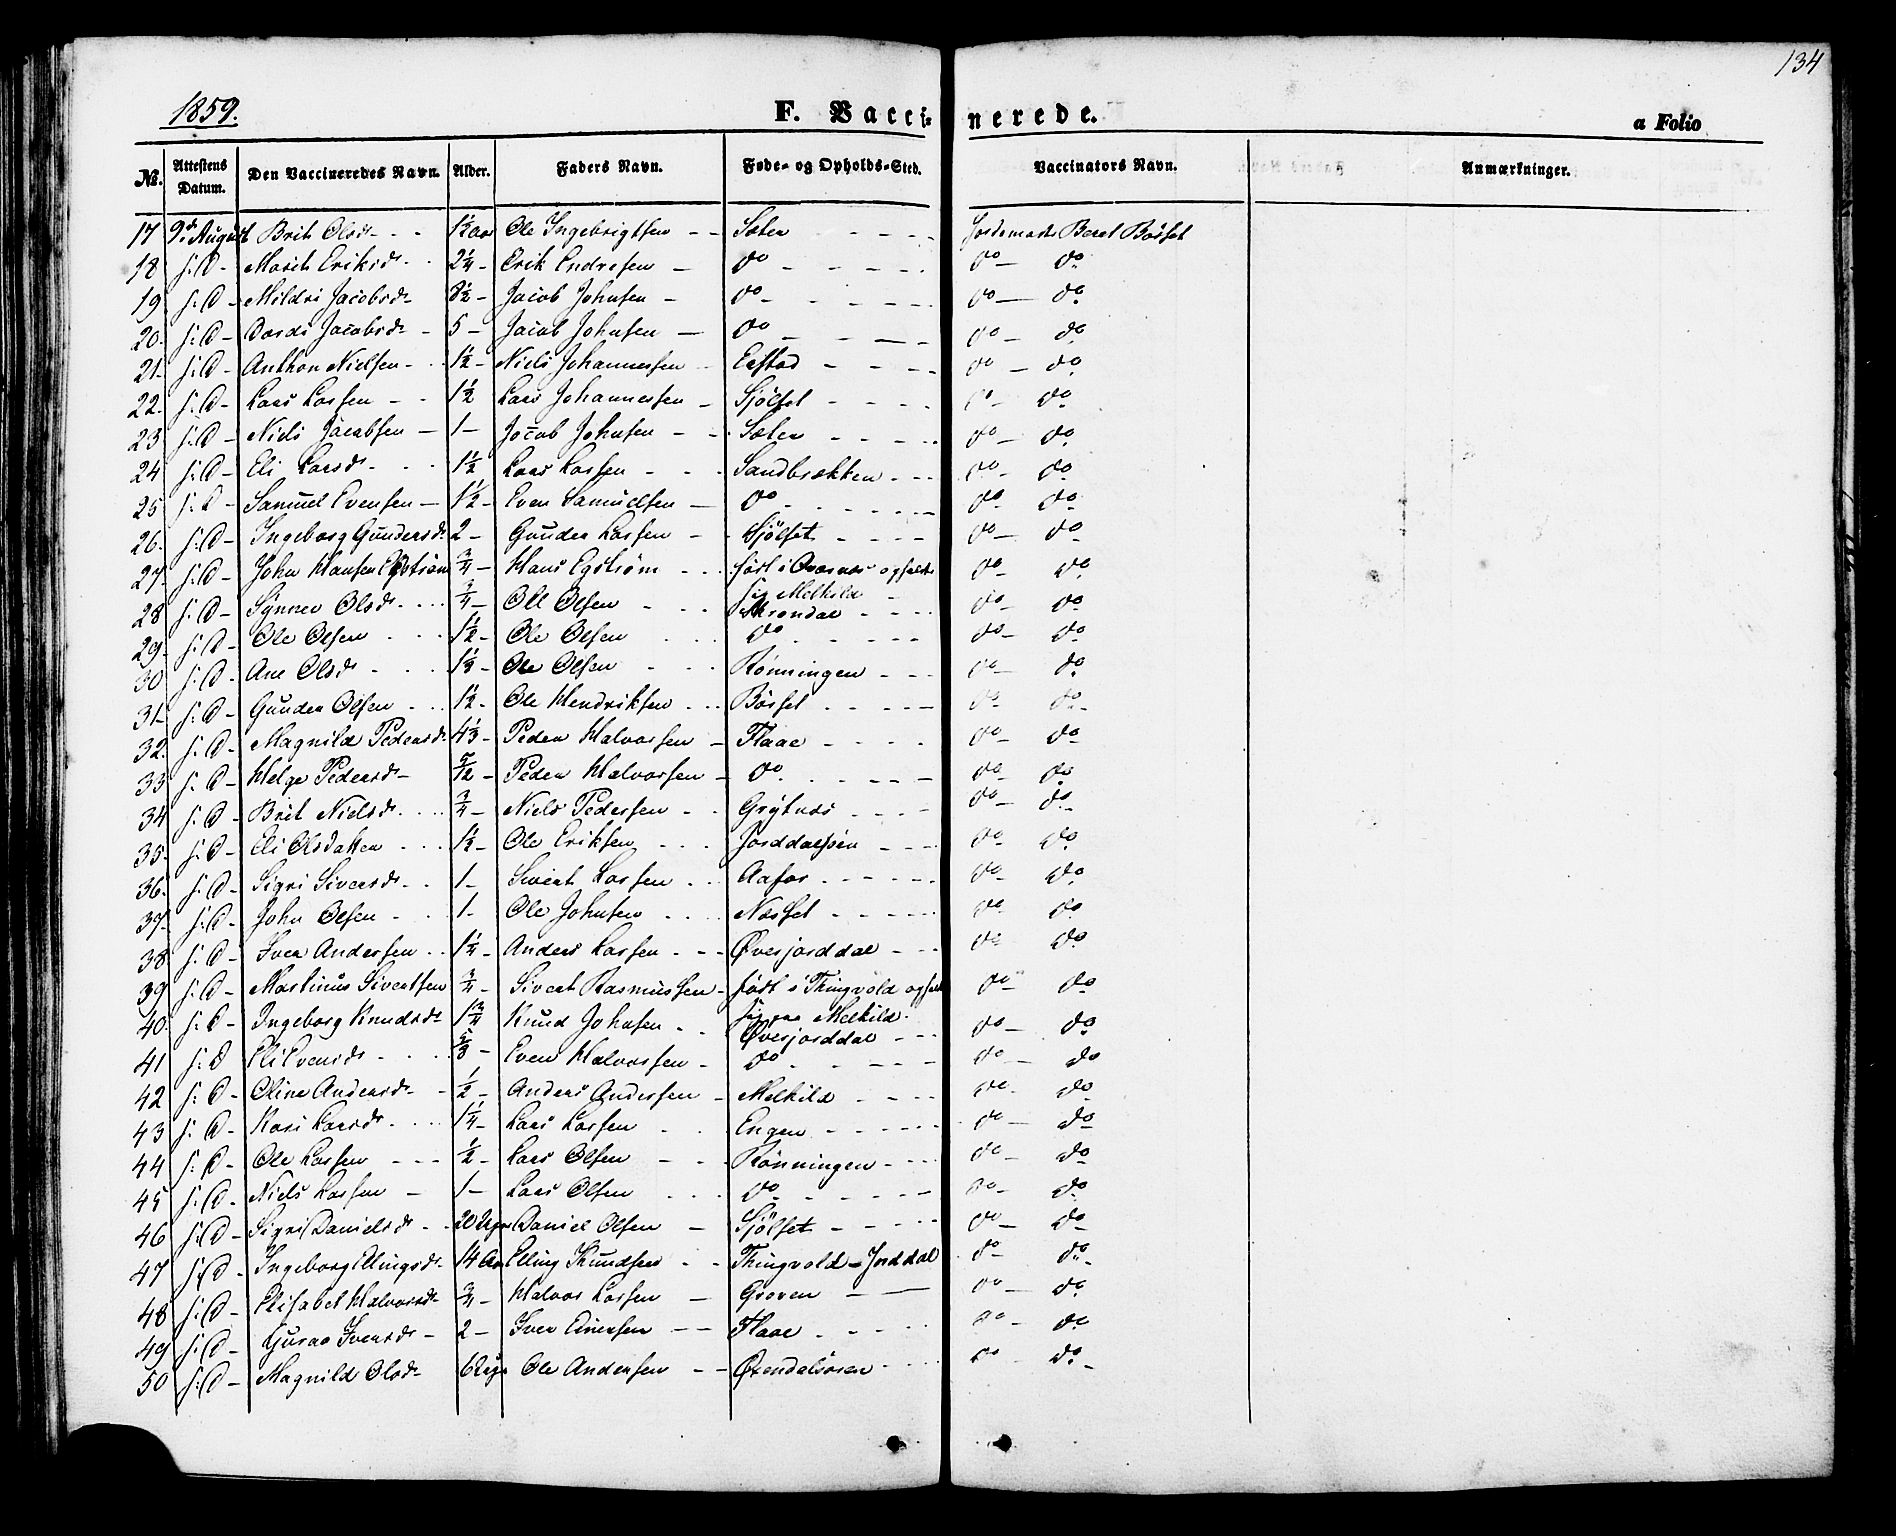 134
1859.
F. Vacci-nerede. a Folio
No. Attestens Datum. Den Vaccineredes Navn. Alder. Faders Navn. Føde- og Opholds-Sted. Vaccinators Navn. Anmærkninger.
17 9de August Brit Olsdr - - 1½ aar Ole Ingebrigtsen - - Sæter - - - - Jordemoder Beret Bøifet
18 s: D - Marit Eriksdr - - 2¼ - Erik Endresen - do - - - - do - do
19 s: D - Mildri Jacobsdr 8½ - Jacob Johnsen - do - - - - do - do
20. s: D - Bardi Jacobsdr - 5 - Jacob Johnsen - do - - - - do - do
21. s: D - Anthon Nielsen - - 1½ - Niels Johannessen - - - - do - do
22. s: D - Lars Larsen - - 1½ Lars Johannessen - Sjølset - - - - do - do
23 s: D - Niels Jacobsen - 1 - Jacob Johnsen - - Sæter - - - - do - do
24 s: D - Eli Larsdr - - 1½ Lars Larsen - - - Sandbrækken - - - do - do
25 s: D - Samuel Evensen - 1½ - Even Samuelsen - do - - - - do - do
26. s: D - Ingeborg Gundersdr 2 - Gunder Larsen - - Sjølset - - - - do - do
27. s: D - John Hansen Egstrøm ¾ - Hans Egstrøm - - - født i Qværnæs opholdr do - do
sig Melkild
28 s: D - Synnev Olsdr - - - ¾ - Ole Olsen - - - do - do
29. s: D - Ole Olsen - - - 1½ - Ole Olsen - - - do - - - - do - do
30 s: D - Ane Olsdr - - - 1½ - Ole Olsen - - - Rønningen - - - do - do
31 s: D - Gunder Olsen - - - 1½ - Ole Hendriksen - - - - - - do - do
32. s: D - Magnild Pedersdr 4⅓ - Peder Halvorsen - Flaae - - - - do - do
33 s: D - Helge Pedersdr - 5/12 - Peder Halvorsen - do - - - - do - do
34 s: D - Brit Nielsdr - - - ¾ - Niels Pedersen - - Grytnæs - - - do - do
35. s: D - Eli Olsdatter - - - 1½ - Ole Eriksen - - - Jorddalsøien - - - do - do
36. s: D - Sigri Siversdr - - 1 - Sivert Larsen - - - - - - do - do
37. s: D - John Olsen - - - 1 - Ole Johnsen - - - Næsset - - - - do - do
38 s: D - Iver Andersen - - 1¼ - Anders Larsen - - - Øverjorddal - - do - do
39 s: D - Martinus Sivertsen ¾ - Sivert Rasmussen - født i Thingvold opholdr do - do
sig paa Melkild.
40. s: D - Ingeborg Knudsdr 1¾ Knud Johnsen - - Øverjorddal - - - do - do
41 s: D Eli Evensdr - - - ⅔ - Even Halvorsen - do - - - - do - do
42 s: D - Oline Andersdr - - ½ - Anders Andersen - Melkild - - - do - do
43 s: D - Kari Larsdr - - - 1¼ - Lars Larsen - - Engen - - - - do - do
44 s: D - Ole Larsen - - - ½ - Lars Olsen - - - Rønningen - - - do - do
45 s: D - Niels Larsen - 1 - Lars Olsen - - - do - - - - do - do
46 s: D - Sigri Danielsdr - - 20 Uger Daniel Olsen - Sjølset - - - - do - do
47 s: D - Ingeborg Ellingsdr - 14 aar Elling Knudsen - - Thingvold - Jorddal - do - do
48 s: D - Elisabet Halvorsdr ¾ - Halvor Larsen - Groven - - do - do
49 s: D - Guroe Iversdr - 2 - Iver Einersen - - Flaae - - - - do - do
50 s: D - Magnild Olsdr - 6 Uger Ole Andersen - - Øxendalsøren - - - do - do